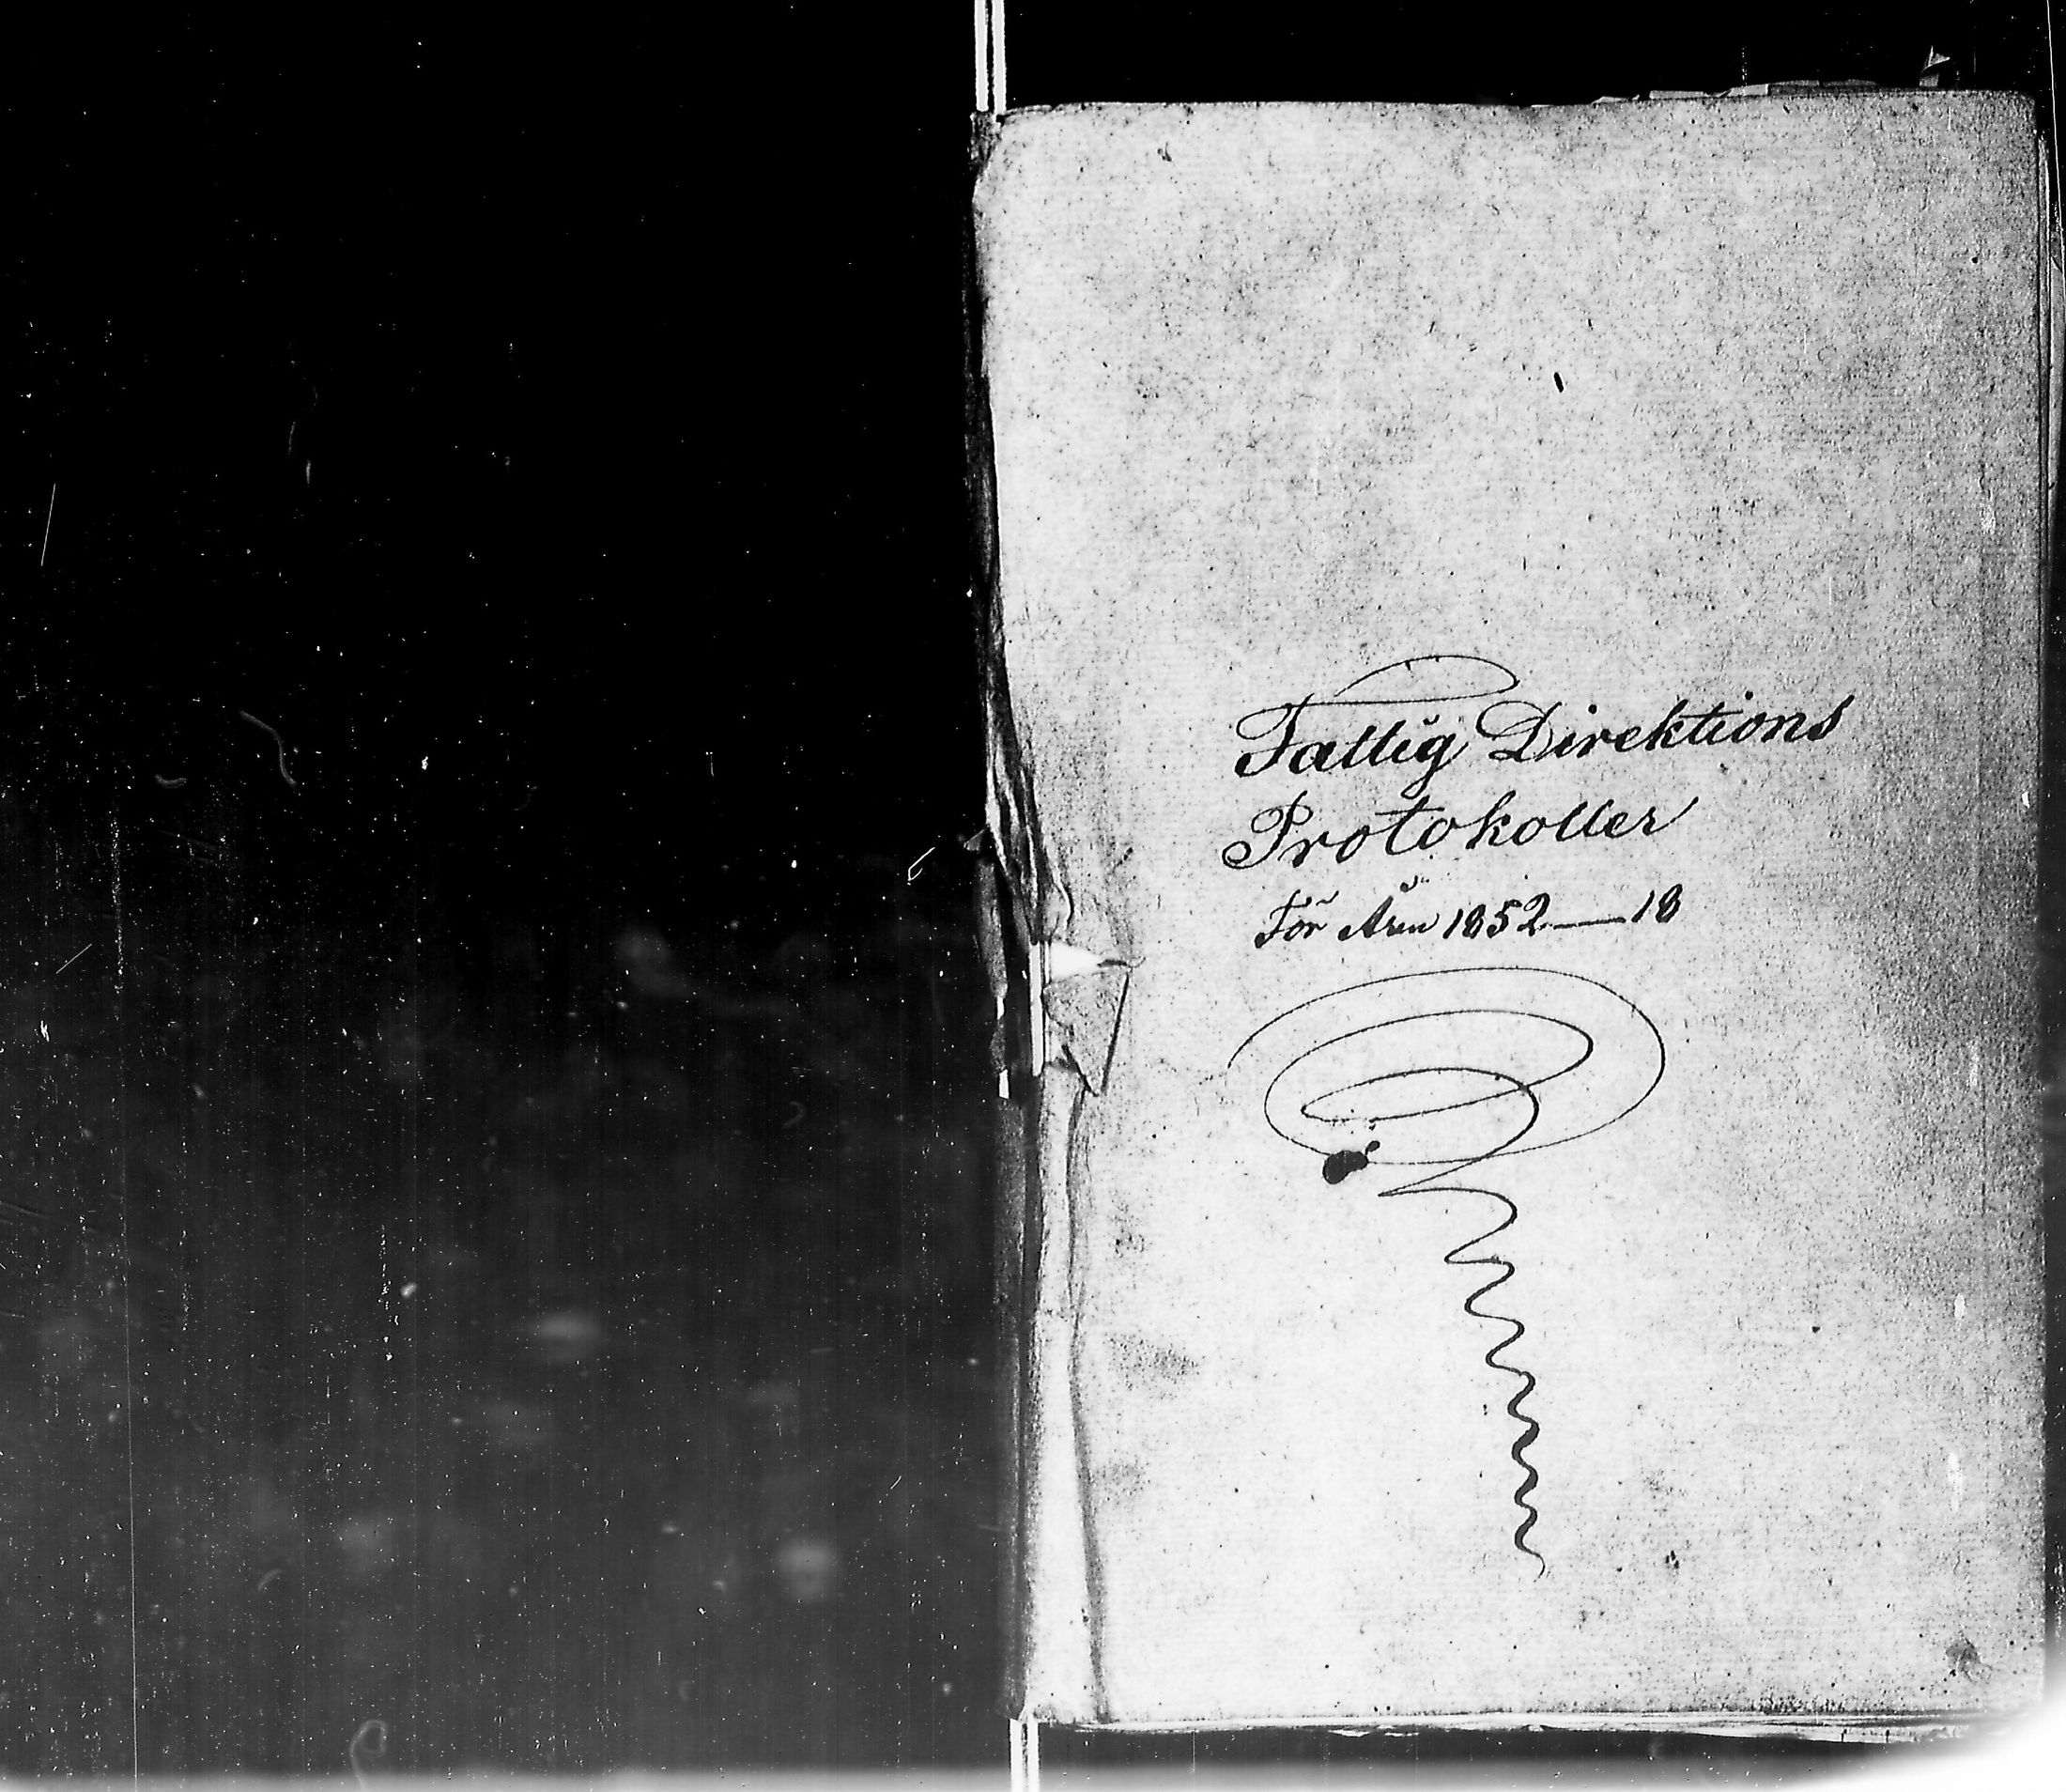 Fattig Direktions
Protokoller
För Åren 1852 — 18